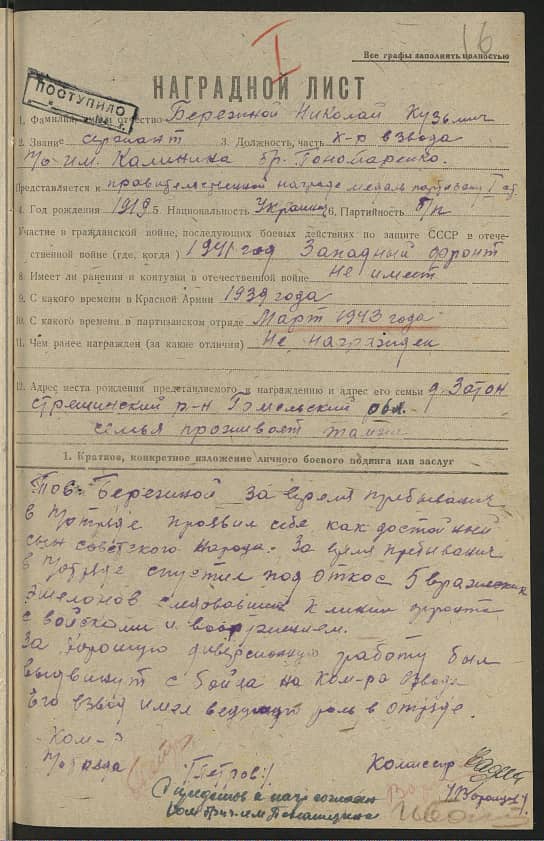 16
I
Все графы заполнять полностью
НАГРАДНОЙ ЛИСТ
ПОСТУПИЛО
1. Фамилия, имя и отчество Березиной Николай Кузьмич
2. Звание сержант 3. Должность, часть к-р взвода
п/о им. Калинина бр. Пономаренко.
Представляется к правительственной награде медаль партизану I ст.
4. Год рождения 1919 5. Национальность Украинец 6. Партийность б/п
Участие в гражданской войне, последующих боевых действиях по защите СССР в отече-
ственной войне (где, когда) 1941 год Западный фронт
8. Имеет ли ранения и контузии в отечественной войне Не имеет
9. С какого времени в Красной Армии 1939 года
10. С какого времени в партизанском отряде Март 1943 года
11. Чем ранее награжден (за какие отличия) Не награжден
12. Адрес места рождения представляемого к награждению и адрес его семьи д. Затон
стрешинский р-н Гомельский обл.
семья проживает там же
1. Краткое, конкретное изложение личного боевого подвига или заслуг
Тов. Березиной за время пребывания
в п/отряде проявил себя как достойный
сын советского народа. За время пребывания
в п/отряде спустил под откос 5 вражеских
эшелонов следовавших к линии фронта
с войсками и вооружением.
За хорошую диверсионную работу был
выдвинут с бойца на Ком-ра взвода
Его взвод имел ведущую роль в отряде.
Ком-р
п/отряда /Петров/ Комиссар
/Воронцов/